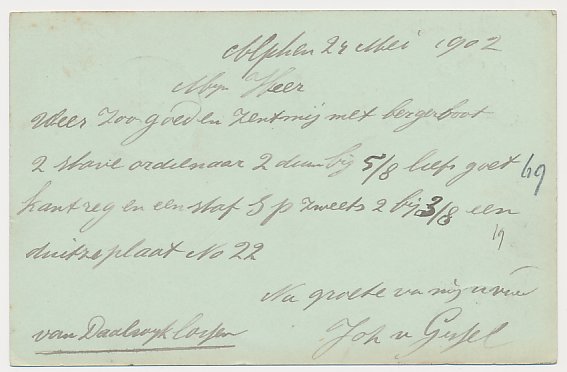 Alphen 24 Mei 1902
Mijn Heer
Weer Zoo goed en Zent mij met bergerboot
2 stave ordenaar 2 duim bij 5/8 liefs goet 69
kant reg en een staf S p Zweets 2 bij 3/8 een
duitze plaat No 22 19
Na groete va mij u vrie
van Daalwyk lossen Joh v Gessel